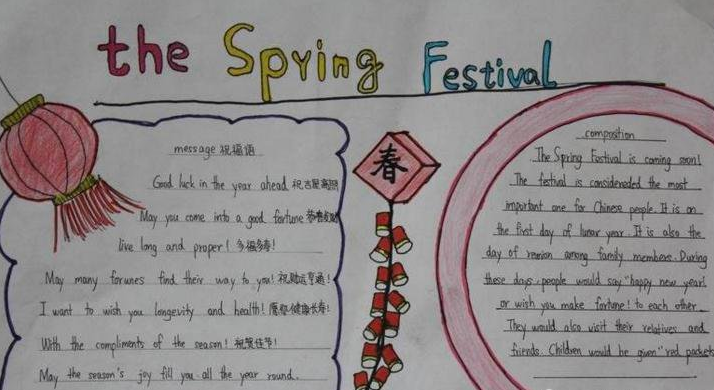 the Spring Festival
message 祝福语
Good luck in the year ahead 祝吉星高照
May you come into a good fortune 恭喜发财
live long and proper! 多福多寿!
May many forunes find their way to you! 祝财运亨通!
I want to wish you longevity and health! 愿您健康长寿!
With the compliments of the season! 祝贺佳节!
May the season's joy fill you all the year round.
春
composition
The Spring Festival is coming soon!
The festival is considereded the most
important one for Chinese people. It is on
the first day of lunar year. It is also the
day of reunion among family members. During
these days, people would say "happy new year!
or wish you make fortune! to each other.
They would also visit their relatives and
friends. Children would be given "red packets